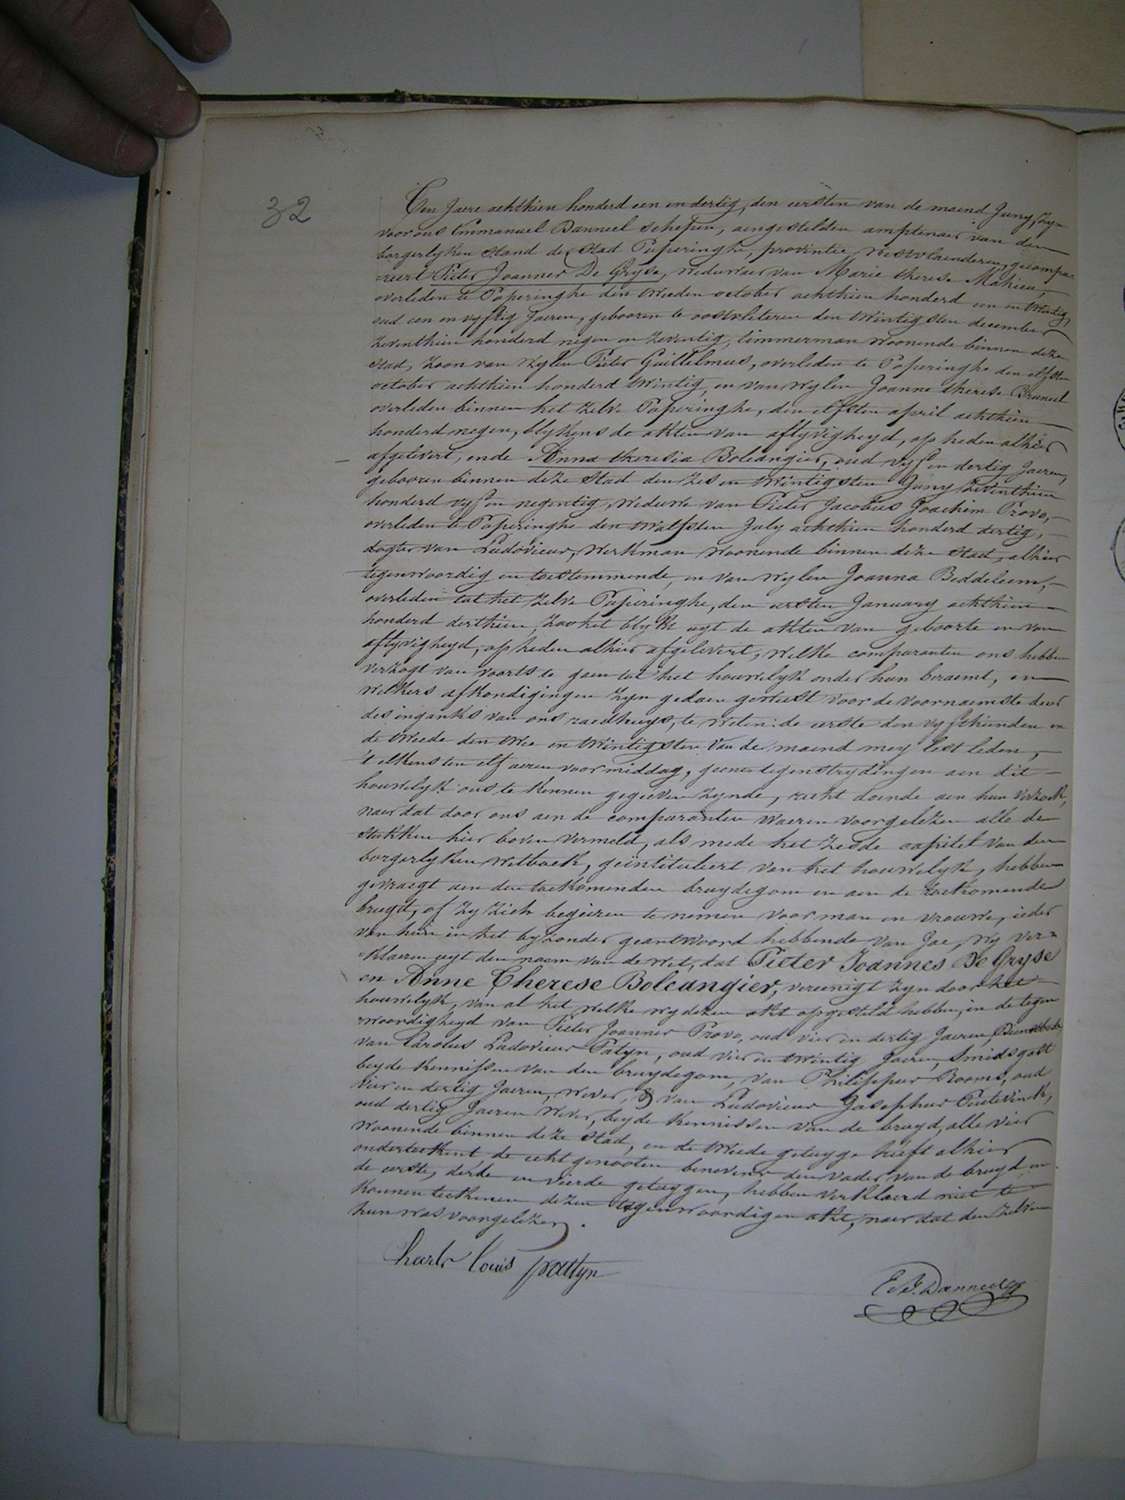 32
Een Jaere achthien honderd een en dertig, den eersten van de maend Juny, zyn
voor ons Emmanuel Danneel schepen, aengestelden amptenaer van den
borgerlyken stand der Stad Poperinghe, provintie Westvlaenderen, gecompa-
reert Pieter Joannes De Gryse, weduwaer van Marie therese Mahieu,
overleden te Poperinghe den tweeden october achthien honderd een en twintig,
oud een en vyftig Jaeren, gebooren te oostvleteren den twintigsten december
zeventhien honderd negen en zeventig, timmerman woonende binnen deze
stad, zoon van wylen Pieter Guillelmus, overleden te Poperinghe den elfsten
october achthien honderd twintig, en van wylen Joanne therese Bruneel
overleden binnen het zelve Poperinghe, den elfsten april achthien
honderd negen, blykens de akten van aflyvigheyd, op heden alhier
afgelevert, ende Anna theresia Bolcangier, oud vyf en dertig Jaeren,
gebooren binnen deze stad den zes en twintigsten Juny zeventhien
honderd vyf en negentig, weduwe van Pieter Jacobus Joachim Provo,
overleden te Poperinghe den twalfsten July achthien honderd dertig,
dogter van Ludovicus, werkman woonende binnen deze stad, alhier
tegenwoordig en toestemmende, en van wylen Joanna Beddeleem,
overleden tot het zelve Poperinghe, den eersten January achthien
honderd derthien zoo het blykt uyt de akten van geboorte en van
aflyvigheyd, op heden alhier afgelevert, welke comparanten ons hebben
verzogt van voorts te gaen tot het houwelyk onder hun beraemt, en
welkers afkondigingen zyn gedaen geweest voor de voornaemste deur
des ingangs van ons raedhuys, te weten: de eerste den vyfthienden en
de tweede den twee en twintigsten van de maend mey lest leden,
't elkens ten elf ueren voormiddag, geene tegenstrydingen aen dit
houwelyk ons te kennen gegeven zynde, recht doende aen hun verzoek,
naer dat door ons aen de comparanten waeren voorgelezen alle de
stukken hier boven vermeld, als mede het zesde capitel van den
borgerlyken wetboek, geintituleert van het houwelyk, hebben
gevraegt aen den toekomenden bruydegom en aen de toekomende
bruyd, of zy zich begeeren te nemen voor man en vrouwe, ieder
van hun in het byzonder geantwoord hebbende van Jae, wy ver-
klaeren uyt den naem van de wet, dat Pieter Joannes De Gryse
en Anne Therese Bolcangier, vereenigt zyn door het
houwelyk, van al het welke wy dezen akt opgesteld hebben, in de tegen
woordigheyd van Pieter Joannes Provo, oud vier en dertig Jaeren,
van Carolus Ludovicus Patyn, oud vier en twintig Jaeren, smidsgast
beyde kennissen van den bruydegom, van Philippus Rooms, oud
vier en dertig Jaeren, wever, & van Ludovicus Josephus
oud dertig Jaeren wever, beyde kennissen van de bruyd, alle vier
woonende binnen deze stad, en de tweede getuyge heeft alhier
onderteekent de echtgenooten benevens den vader van de bruyd en
de eerste, derde en vierde getuygen, hebben verklaerd niet te
konnen teekenen dezen tegenwoordigen akt, naer dat den zelven
hun was voorgelezen.
Charles Louis Pattyn
E. J. Danneel